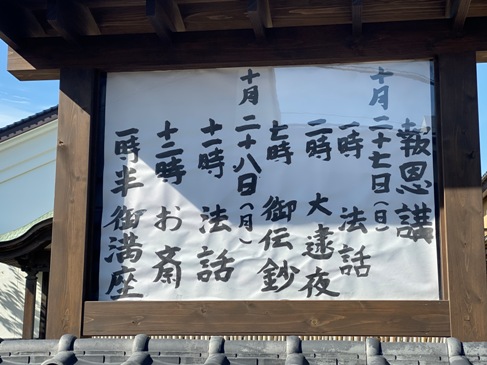 報恩講
十月二十七日（日）
一時 法話
二時 大逮夜
七時 御伝鈔
十月二十八日（月）
十一時 法話
十二時 お斎
一時半 御満座